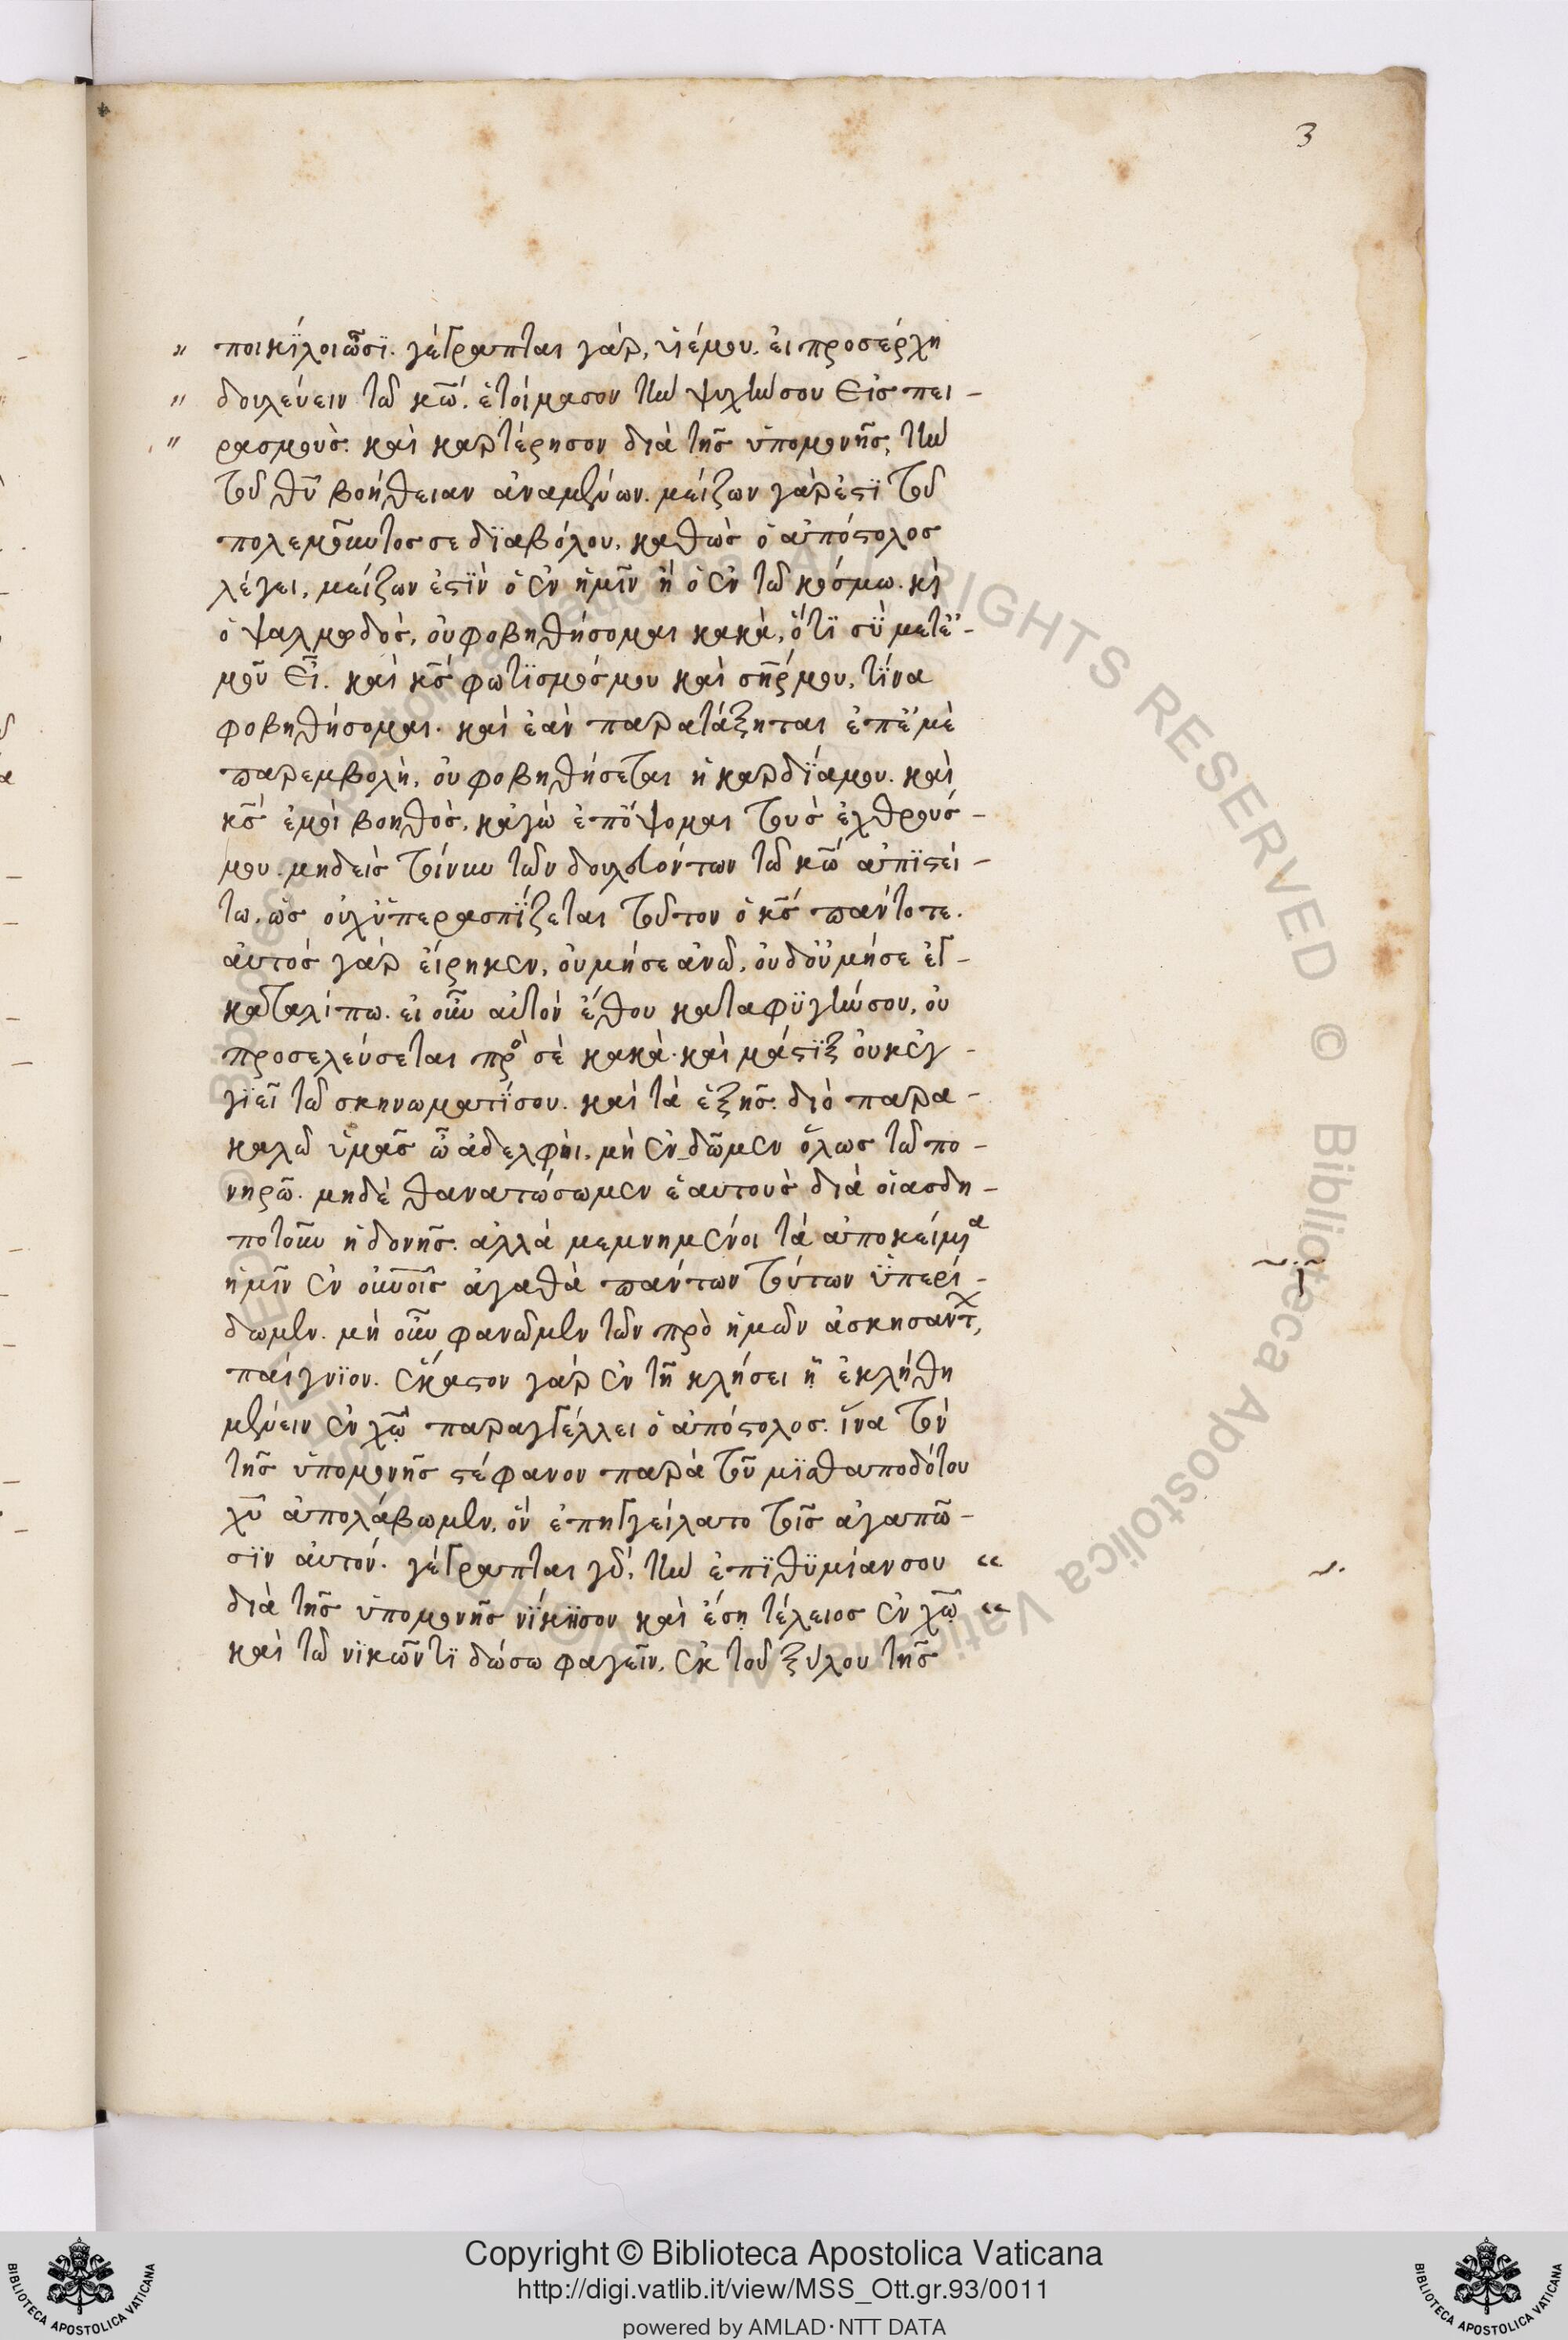 3
ποικίλοι ὦσϊ. γέγραπται γὰρ, υἱέ μου. εἰ προσέρχη
δουλεύειν τῶ κω̅. ἑτοίμασον τὴν ψυχήν σου εἰς πει-
ρασμοὺς. καὶ καρτέρησον διὰ τῆς ὑπομονῆς, τὴν
τοῦ θυ̅ βοήθειαν ἀναμένων. μείζων γὰρ ἐστϊ τοῦ
πολεμοῦντος σε δϊαβόλου, καθὼς ὁ ἀπόστολος
λέγει, μείζων ἐστϊν ὁ ἐν ἡμῖν ἢ ὁ ἐν τῶ κόσμω. κὶ
ὁ ψαλμωδὸς, οὐ φοβηθήσομαι κακὰ, ὅτϊ σὺ μετ' ἐ-
μοῦ εἶ. καὶ κς̅ φωτϊσμός μου καὶ σηρ̅ μου, τίνα
φοβηθήσομαι. καὶ ἐὰν παρατάξηται ἐπ' ἐμὲ
παρεμβολὴ, οὐ φοβηθήσεται ἡ καρδϊά μου. καὶ
κς̅ ἐμοὶ βοηθὸς, κἀγὼ ἐπόψομαι τοὺς ἐχθρούς
μου. μηδεὶς τοίνυν τῶν δουλευόντων τῶ κω̅ ἀπϊστεί-
τω, ὡς οὐχ ὑπερασπϊζεται τοῦτον ὁ κς̅ πάντοτε.
αὐτὸς γὰρ εἴρηκεν, οὐ μή σε ἀνῶ, οὐδ' οὐ μή σε ἐγ-
καταλίπω. εἰ οὖν αὐτὸν ἔθου καταφϋγήν σου, οὐ
προσελεύσεται πρὸ σὲ κακὰ. καὶ μάστϊξ οὐκ ἐγ-
γϊεῖ τῶ σκηνώματϊ σου. καὶ τὰ ἑξῆς. διὸ παρα-
καλῶ ὑμᾶς ὦ ἀδελφοὶ, μὴ ἐνδῶμεν ὅλως τῶ πο-
νηρῶ. μηδὲ θανατώσωμεν ἑαυτοὺς διὰ οἱασδη-
ποτοῦν ἡδονῆς. ἀλλὰ μεμνημένοι τὰ ἀποκείμα
ἡμῖν ἐν οὐνοῖς ἀγαθὰ πάντων τούτων ὑπερί-
δωμεν. μὴ οὖν φανῶμεν τῶν πρὸ ἡμῶν ἀσκησάντ,
παίγνϊον. ἕκαστον γὰρ ἐν τῆ κλήσει ᾗ ἐκλήθη
μένειν ἐν χω̅ παραγγέλλει ὁ ἀπόστολος. ἵνα τὸν
τῆς ὑπομονῆς στέφανον παρὰ τοῦ μϊσθαποδότου
χυ̅ ἀπολάβωμεν, ὃν ἐπηγγείλατο τοῖς ἀγαπῶ-
σϊν αὐτόν. γέγραπται γὰρ, τὴν ἐπϊθϋμίαν σου
διὰ τῆς ὑπομονῆς νίκησον καὶ ἔση τέλειος ἐν χω̅
καὶ τῶ νικῶντϊ δώσω φαγεῖν, ἐκ τοῦ ξύλου τῆς
Copyright © Biblioteca Apostolica Vaticana
http://digi.vatlib.it/view/MSS_Ott.gr.93/0011
powered by AMLAD·NTT DATA